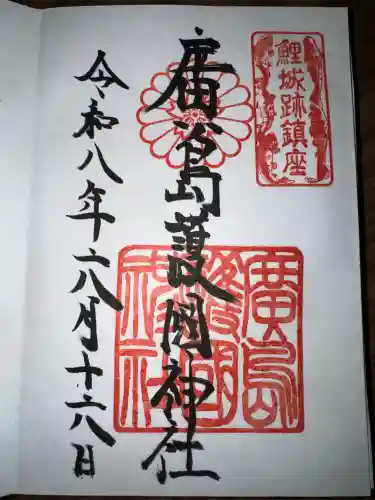 鯉城跡鎮座
廣島護國神社
廣島
護國
神社
令和八年六月十六日